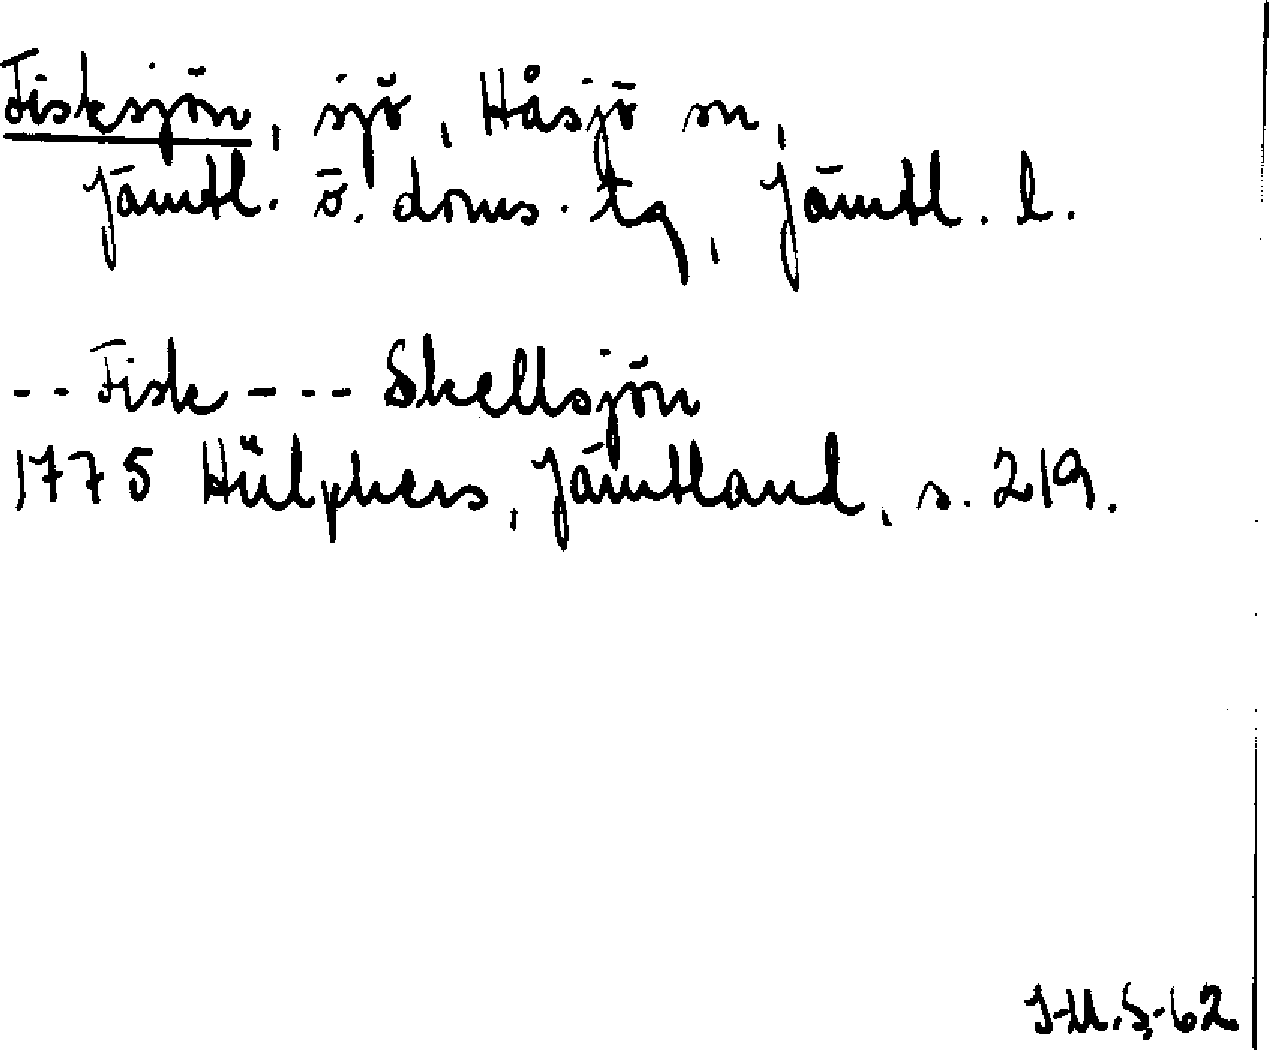 Fisksjön, sjö, Håsjö sn,
Jämtl. ö. doms. tg, Jämtl. l.
-- Fisk --- Skellsjön
1775 Hülphers, Jämtland, s. 219.
J-U.S-62